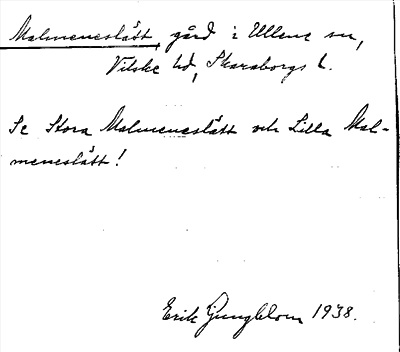 Malmeneslätt, gård i Ullene sn,
Vilske hd, Skaraborgs l.
Se Stora Malmeneslätt och Lilla Mal-
meneslätt!
Erik Ljungblom 1938.